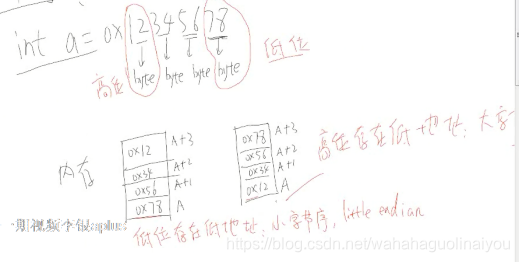 int a = 0x12345678
高位 byte byte byte byte 低位
内存
0x12 A+3
0x34 A+2
0x56 A+1
0x78 A
0x78 A+3
0x56 A+2
0x34 A+1
0x12 A
高位存在低地址:大字
低位存在低地址:小字节序, little endian
https://blog.csdn.net/wahahaguolinaiyou